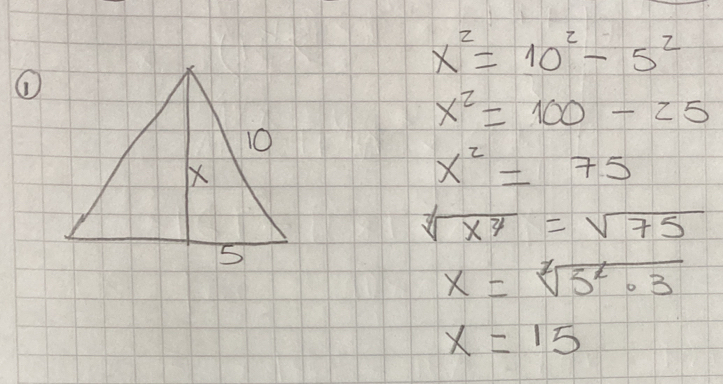 ①
10
x
5
x² = 10² - 5²
x² = 100 - 25
x² = 75
²√x² = √75
x = ²√5² · 3
x = 15